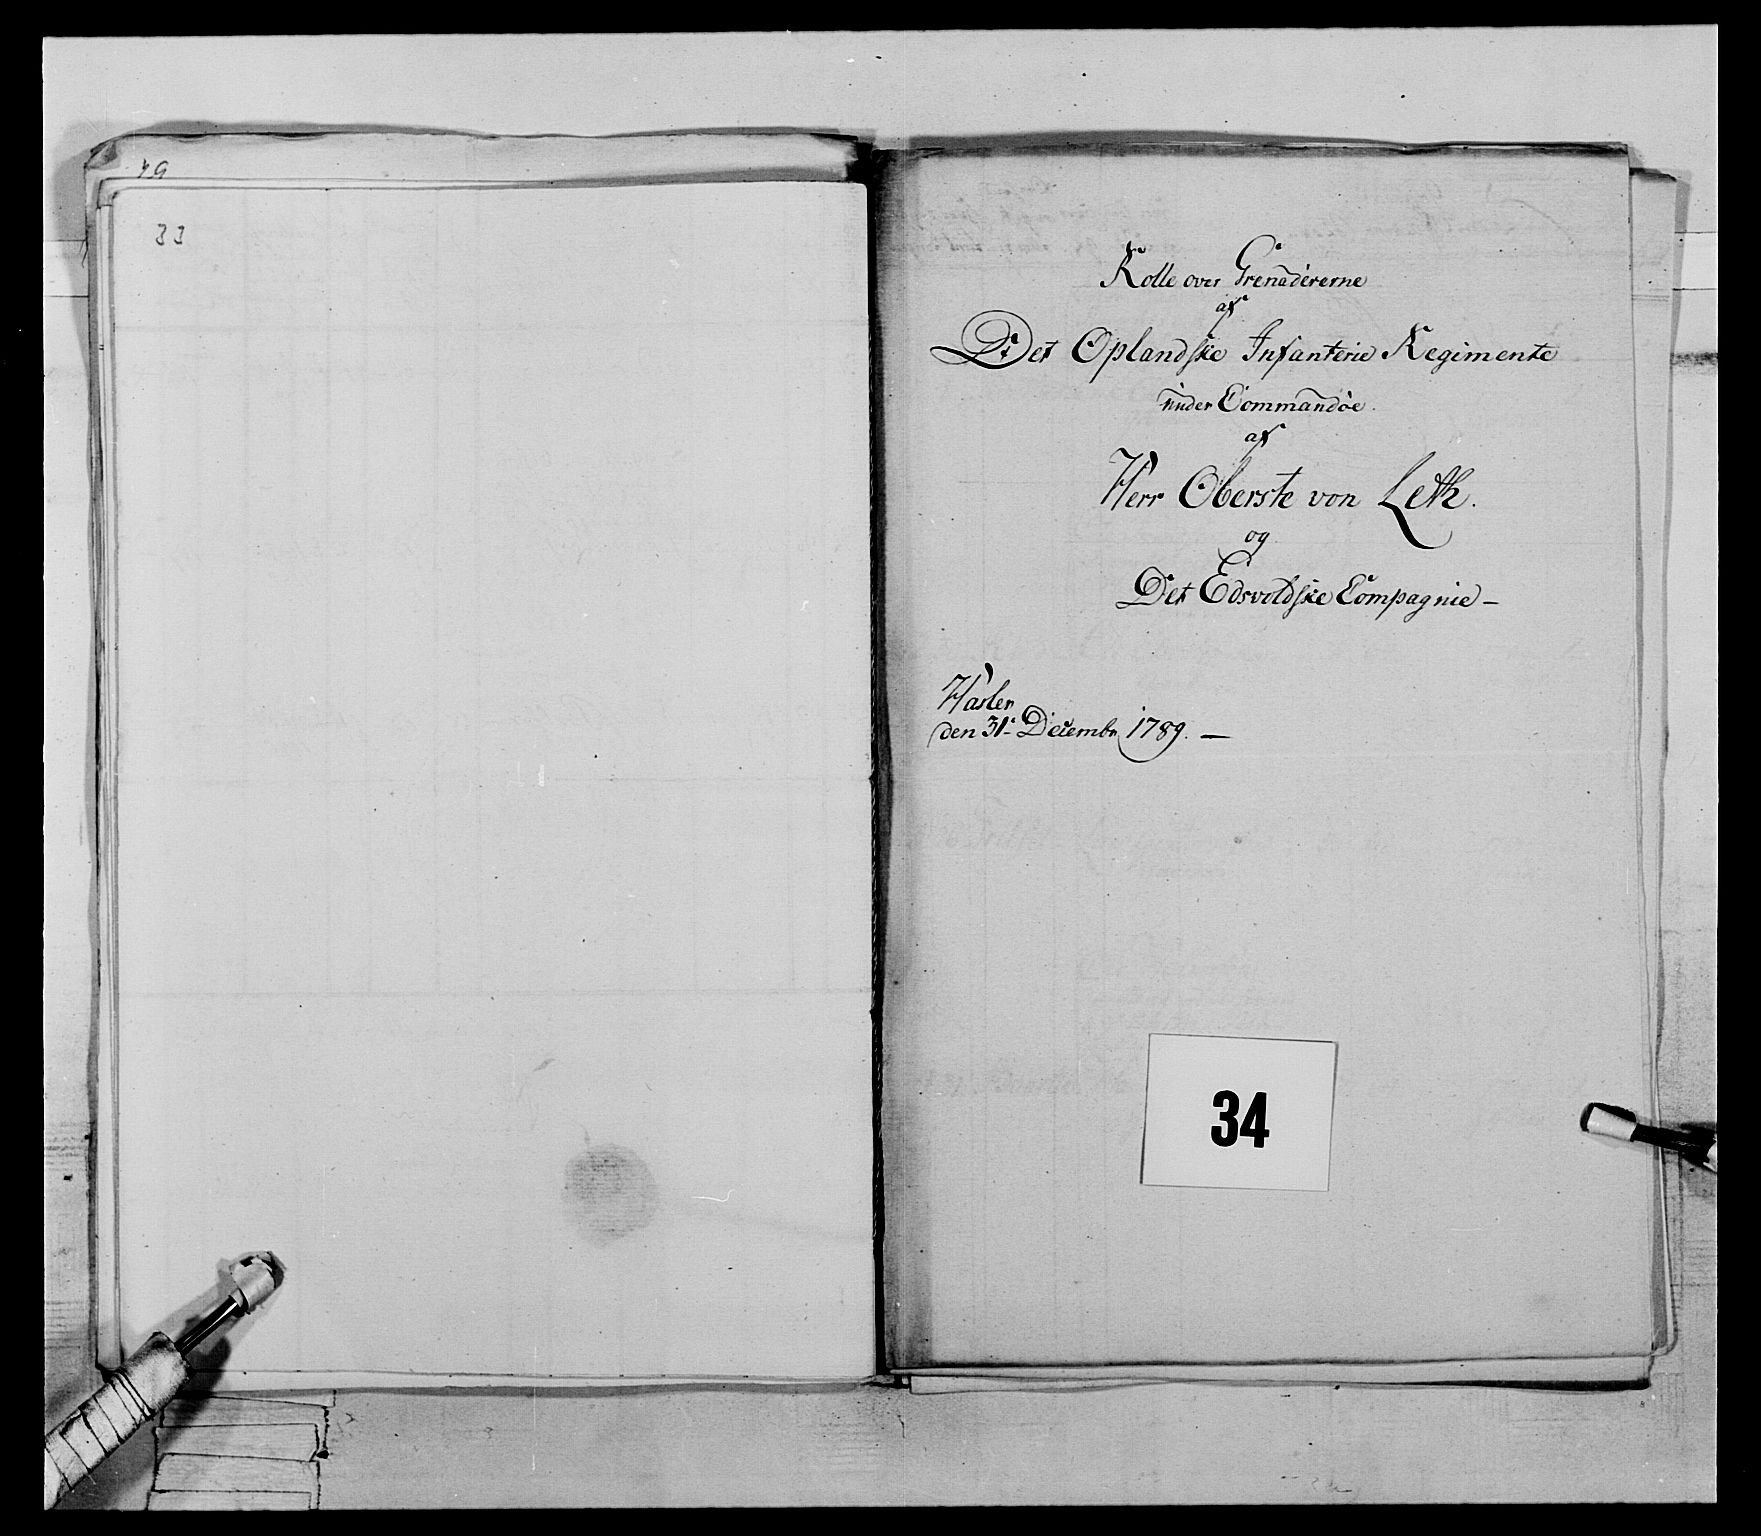 49
33
Rolle over Grenadererne
af
Det Oplandske Infanterie Regimente
under Commandoe.
af
Herr Oberste von Leth.
og
Det Edsvoldske Compagnie –
Hasler
den 31te Decembr 1789. —
34